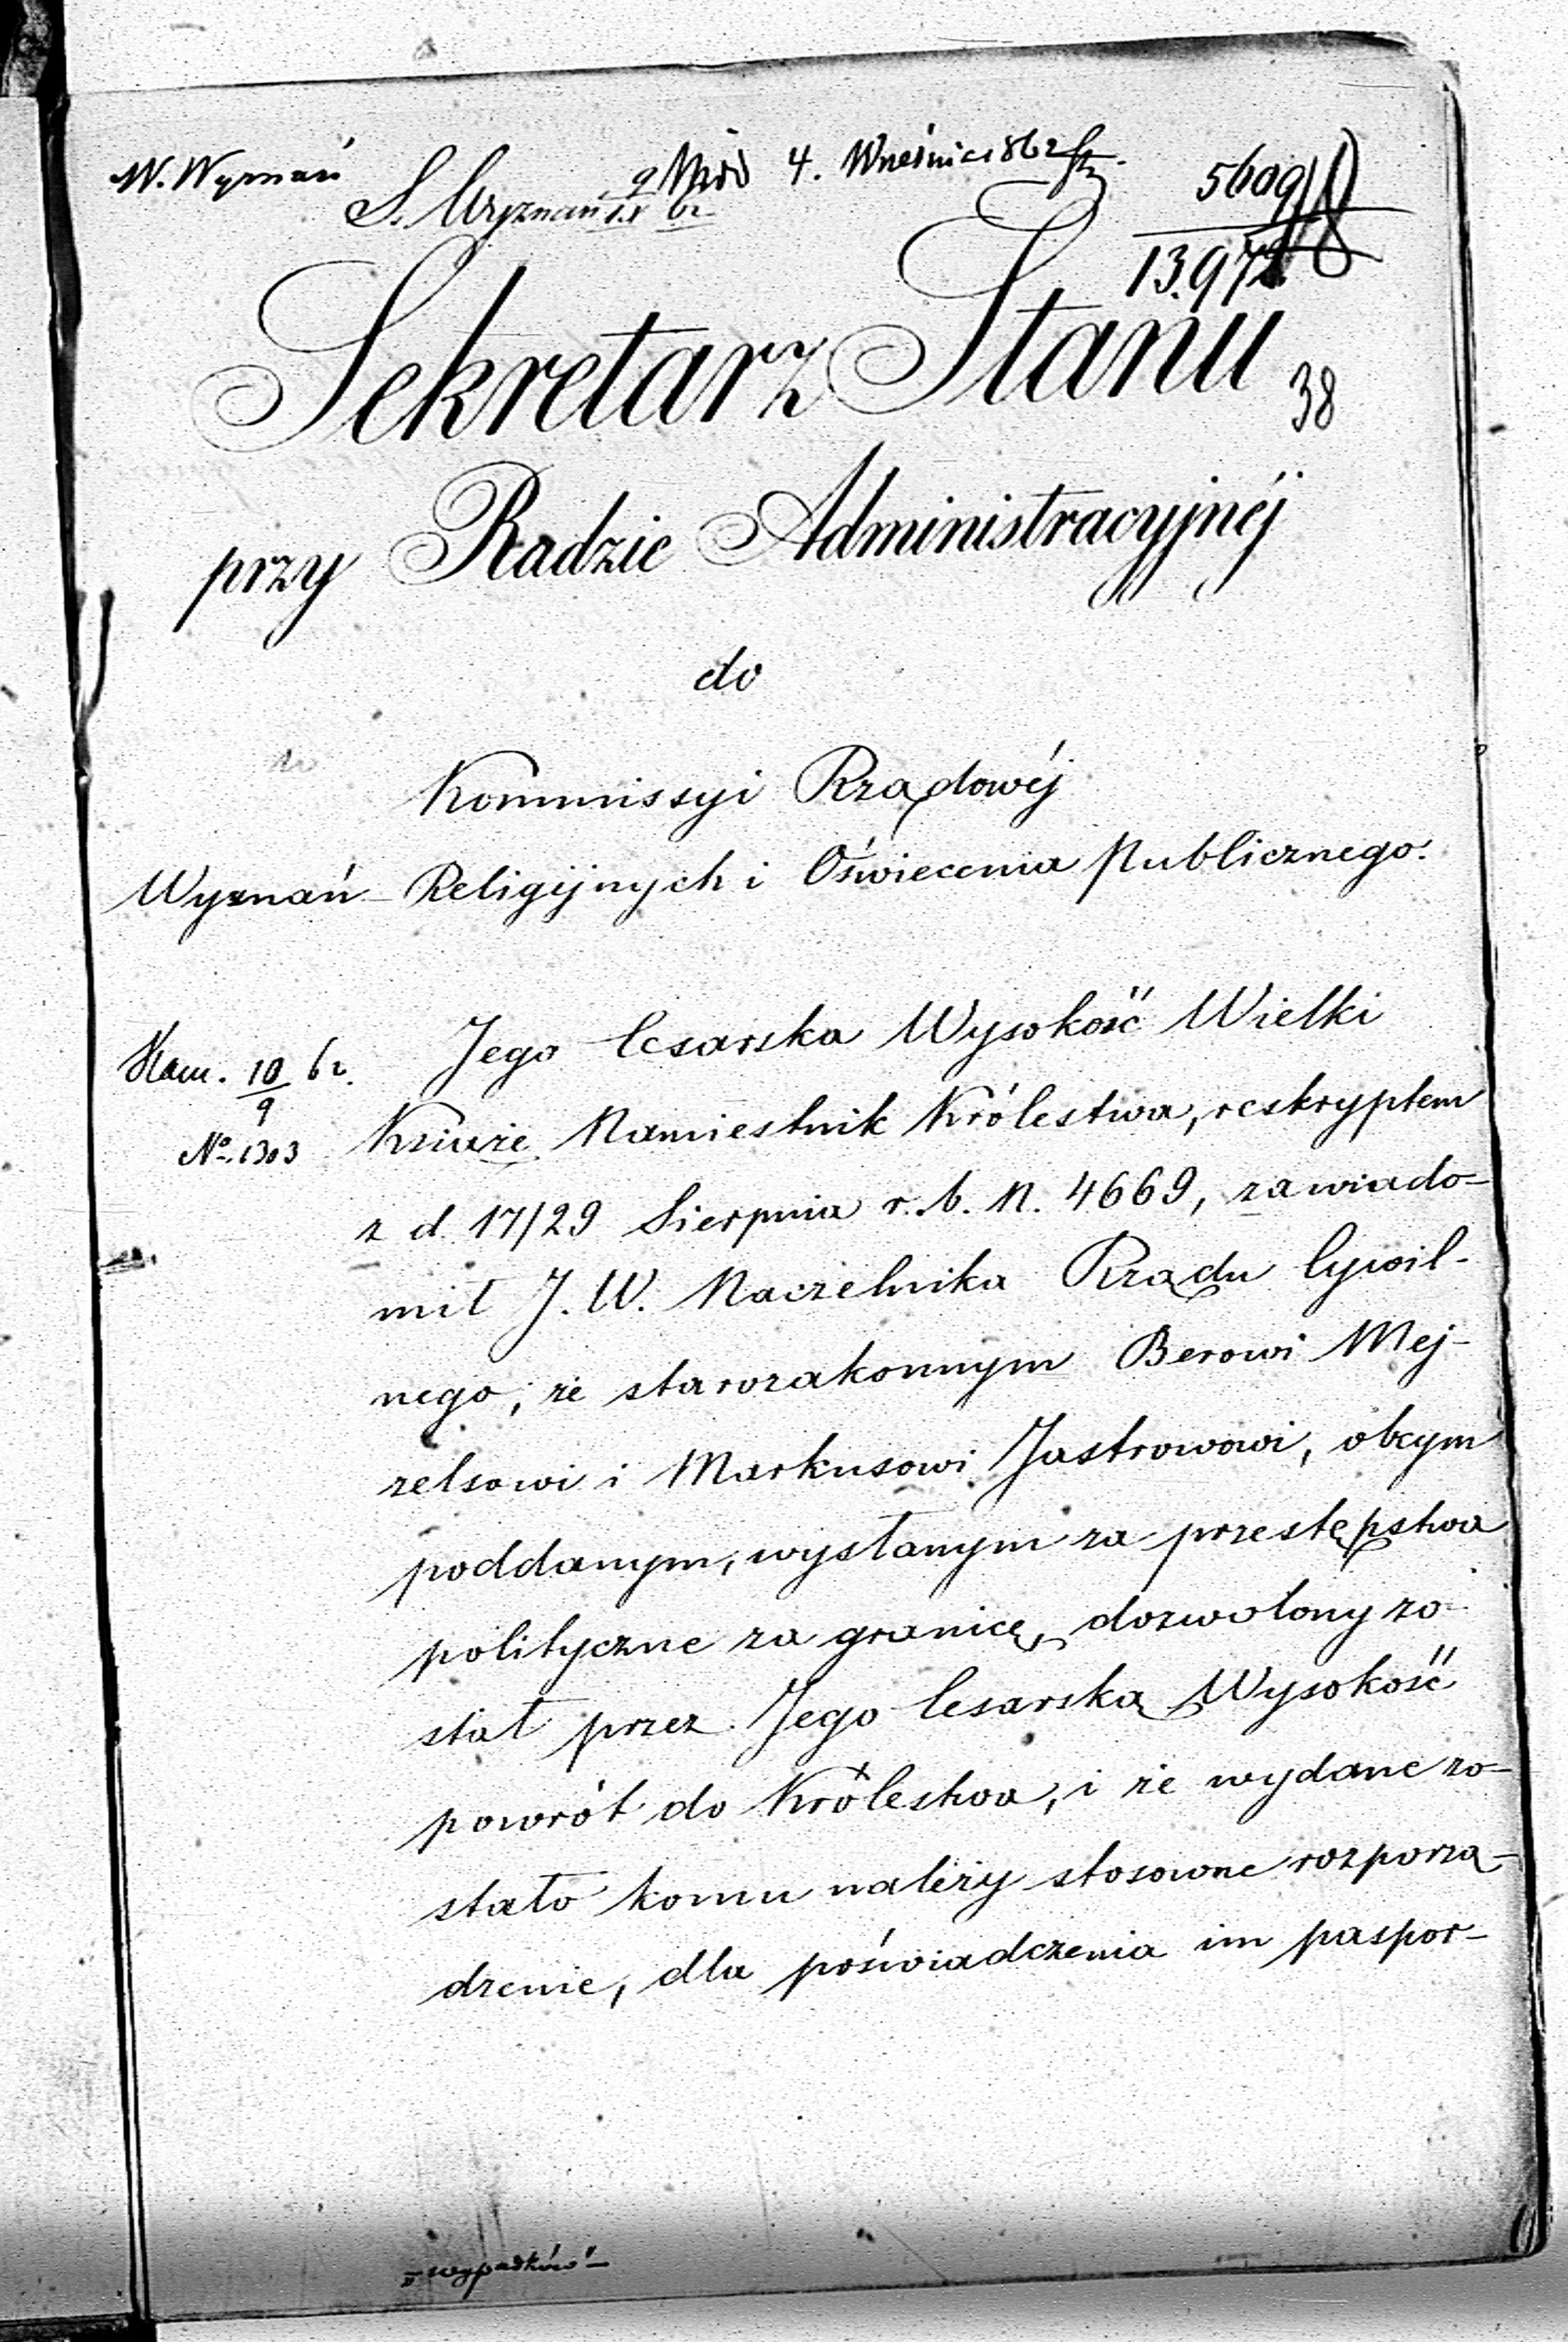 W. Wyznań
S. Wyznań
4. Wrześnic 1862
5609
13.97
Sekretarz Stanu
38
przy Radzie Administracyjnéj
do
Kommissyi Rządowéj
Wyznań Religijnych i Oświecenia Publicznego.
Jego Cesarska Wysokość Wielki
10/9 62.
Książe Namiestnik Królestwa, reskryptem
No. 1303
z d. 17/29 Sierpnia r. b. N. 4669, zawiado-
mił J. W. Naczelnika Rządu Cywil-
nego, że starozakonnym Berowi Mej-
zelsowi i Markusowi Jastrowowi, obcym
poddanym, wysłanym za przestępstwa
polityczne za granicę, dozwolony zo-
stał przez Jego Cesarską Wysokość
powrót do Królestwa, i że wydane zo-
stało komu należy stosowne rozporzą-
dzenie, dla poświadczenia im paspor-
wypadków